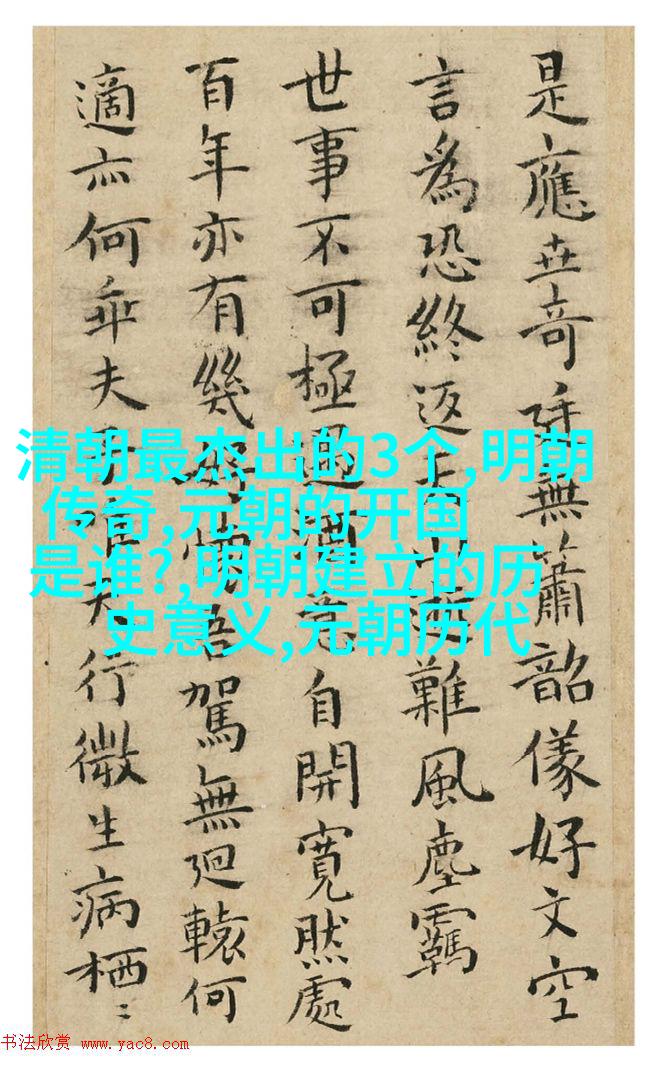 是應世奇無簫韶儀好文空
言為恐終返難風塵羈
世事不可極過意自開寬然處
百年亦有幾好吾駕無迴轅何
適亦何乖夫行微生病栖〻
清朝最杰出的3个,明朝
传奇,元朝的开国
是谁?,明朝建立的历
史意义,元朝历代
书法欣赏 www.yac8.com